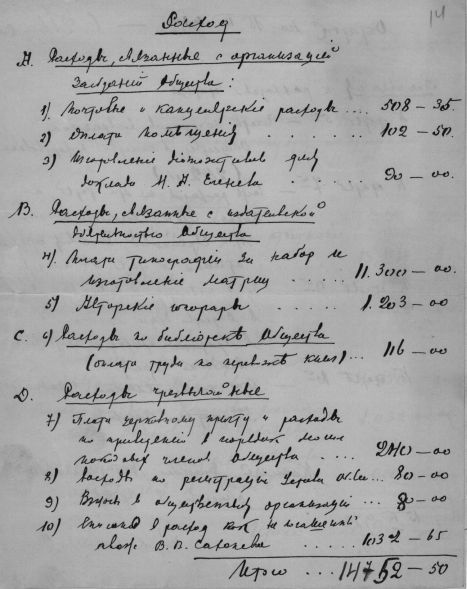 14
Расход
А. Расходы, связанные с организацией
Заседаний Общества:
1) Почтовые и канцелярские расходы .... 508 — 35.
2) Оплата помещения . . . . . . 102 — 50.
3) Изготовление диапозитивов для
доклада Н. А. Еленева . . . . . 20 — 00.
В. Расходы, связанные с издательской
деятельностью Общества
4) Плата типографии за набор и
изготовление матриц . . . . 11.300 — 00.
5) Авторские гонорары . . . . . 1.203 — 00
С. 6) Расходы по библиотеке Общества
(оплата труда по переписке книг) ... 116 — 00
D. Расходы чрезвычайные
7) Плата церковному причту и расходы
по приведению в порядок могил
членов Общества .... 240 — 00
8) Расходы по регистрации Устава Об-ва ... 80 — 00
9) Взносы в общественные организации ... 00
10) Списано в расход как не
В. В. Саханева ..... 1032 — 65
Итого ... 14752 — 50